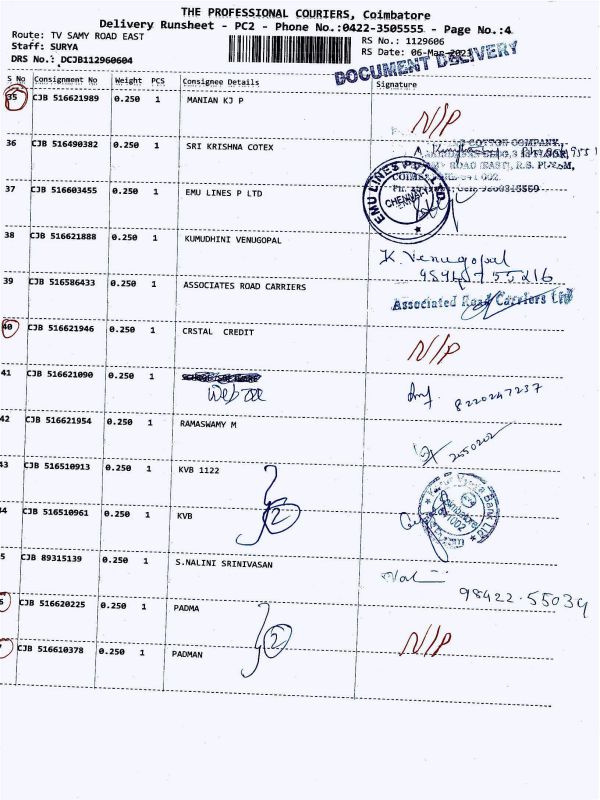 THE PROFESSIONAL COURIERS, Coimbatore
Delivery Runsheet - PC2 - Phone No.:0422-3505555 - Page No.:4
Route: TV SAMY ROAD EAST
RS No.: 1129606
Staff: SURYA
RS Date: 06-Mar-2021
DRS No.: DCJB112960604
DOCUMENT DELIVERY
S No Consignment No Weight PCS Consignee Details Signature
35 CJB 516621989 0.250 1 MANIAN KJ P N/P
36 CJB 516490382 0.250 1 SRI KRISHNA COTEX
COTTON COMPANY,
37 CJB 516603455 0.250 1 EMU LINES P LTD
EMU LINES PVT. LTD.
CHENNAI
38 CJB 516621888 0.250 1 KUMUDHINI VENUGOPAL
K. Venugopal
39 CJB 516586433 0.250 1 ASSOCIATES ROAD CARRIERS
Associated Road Carriers Ltd
40 CJB 516621946 0.250 1 CRSTAL CREDIT N/P
41 CJB 516621090 0.250 1
8220247237
42 CJB 516621954 0.250 1 RAMASWAMY M
2450202
43 CJB 516510913 0.250 1 KVB 1122
44 CJB 516510961 0.250 1 KVB 2
Karur Vysya Bank Ltd
Coimbatore
5 CJB 89315139 0.250 1 S.NALINI SRINIVASAN
98422-55039
6 CJB 516620225 0.250 1 PADMA
2 N/P
7 CJB 516610378 0.250 1 PADMAN